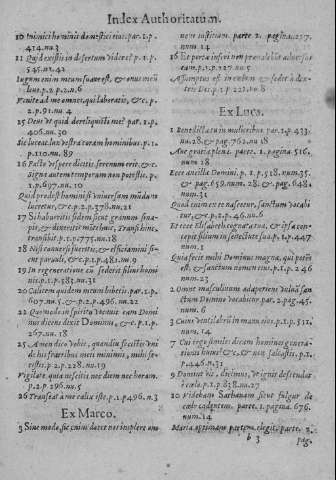 Index Authoritatum.
10 Inimici hominis domestici eius. par. 1. p.
414. nu. 3
11 Quid existis in desertum videre? p. 1. p.
545. nu. 42
Iugum enim meum suave est, & onus meum
leve. p. 2. p. 2. n. 6
Venite ad me omnes, qui laboratis, &c. p.
2. p. 91. nu. 4
15 Deus ut quid dereliquisti me? par. 1. p.
406. nu. 30
Sic luceat lux vestra coram hominibus. p. 1.
p. 110. nu. 89
16 Facto vespere dicitis serenum erit, &c.
signa autem temporum non potestis. p.
1. p. 697. n. 10
Quid prodest homini si universum mundum
lucretur, &c. p. 2. p. 378. nu. 21
17 Si habueritis fidem sicut granum sina-
pis, & dixeritis monti huic, Transi hinc,
transibit. p. 1. p. 1775. nu. 18
18 Nisi conversi fueritis, & efficiamini si-
cut parvuli, &c. p. 1. p. 481. nu. 9
19 In regeneratione cum sederit filius homi-
nis. p. 1. p. 583. nu. 31
20 Calicem quidem meum bibetis. par. 1. p.
607. nu. 5. & p. 2. p. 496. nu. 22
22 Quomodo in spiritu vocat eum Domi
nus dicens dixit Dominus, &c. p. 1. p.
267. nu. 18
25 Amen dico vobis, quandiu fecistis uni
de his fratribus meis minimis, mihi fe-
cistis. p. 2. p. 228. nu. 19
Vigilate quia nescitis nec diem nec horam.
p. 2. p. 296. nu. 5
26 Transeat a me calix iste. p. 1. p. 496. n. 3
Ex Marco.
3 Sine modo, sic enim decet nos implere om
nem iustitiam. parte 2. pagin. 1. 257.
num. 14
16 Et portæ inferi non prævalebunt adversus
eam. p. 1. p. 127. nu. 5
Assumptus est in cœlum & sedet à dex-
tris Dei. p. 1. p. 221. nu. 8
Ex Luca.
1 Benedicta tu in mulieribus. par. 1. p. 433.
nu. 28. & pag. 762. nu. 18
Ave gratia plena. parte 1. pagina 516.
num. 18
Ecce ancilla Domini. p. 1. p. 518. num. 35.
& pag. 659. num. 28. & pag. 648.
num. 31
Quod enim ex te nascetur, sanctum vocabi
tur, &c. p. 2. p. 46. nu. 6
Et ecce Elisabeth cognata tua, & ipsa con-
cepit filium in senectute sua. p. 1. p. 447.
num. 1
Quia fecit mihi Dominus magna, qui potens
est, & sanctum nomen eius. p. 1. p. 246
num. 23
2 Omne masculinum adaperiens vulvam san
ctum Domino vocabitur. par. 2. pag. 45.
num. 6
3 Cuius ventilabrum in manu eius. p. 1. p. 512.
num. 14
7 Cui ergo similes dicam homines genera-
tionis huius? &c. & non saltastis. p. 1.
p. 446. n. 31
9 Domine vis, dicimus, ut ignis descendat
de cœlo. p. 1. p. 838. nu. 27
10 Videbam Sathanam sicut fulgur de
cœlo cadentem. parte 1. pagina 676.
num. 14
Maria optimam partem elegit. parte 2.
b 3
pag.